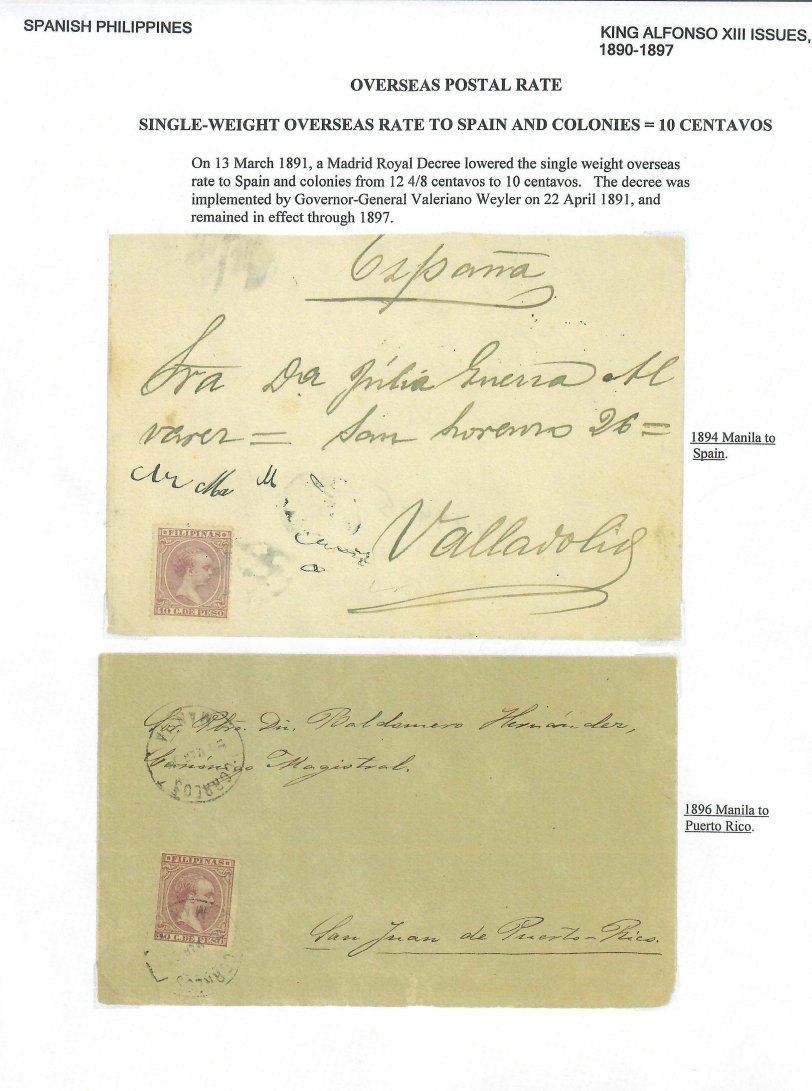 SPANISH PHILIPPINES
KING ALFONSO XIII ISSUES,
1890-1897
OVERSEAS POSTAL RATE
SINGLE-WEIGHT OVERSEAS RATE TO SPAIN AND COLONIES = 10 CENTAVOS
On 13 March 1891, a Madrid Royal Decree lowered the single weight overseas
rate to Spain and colonies from 12 4/8 centavos to 10 centavos. The decree was
implemented by Governor-General Valeriano Weyler on 22 April 1891, and
remained in effect through 1897.
España
Sra Da Júlia Guerra Al
varez = San Lorenzo 26 =
Valladolid
FILIPINAS
10 C. DE PESO
1894 Manila to
Spain.
Dn. Baldomero Hernández,
Canónigo Magistral.
MANILA
CORREOS
FILIPINAS
10 C. DE PESO
San Juan de Puerto-Rico.
1896 Manila to
Puerto Rico.